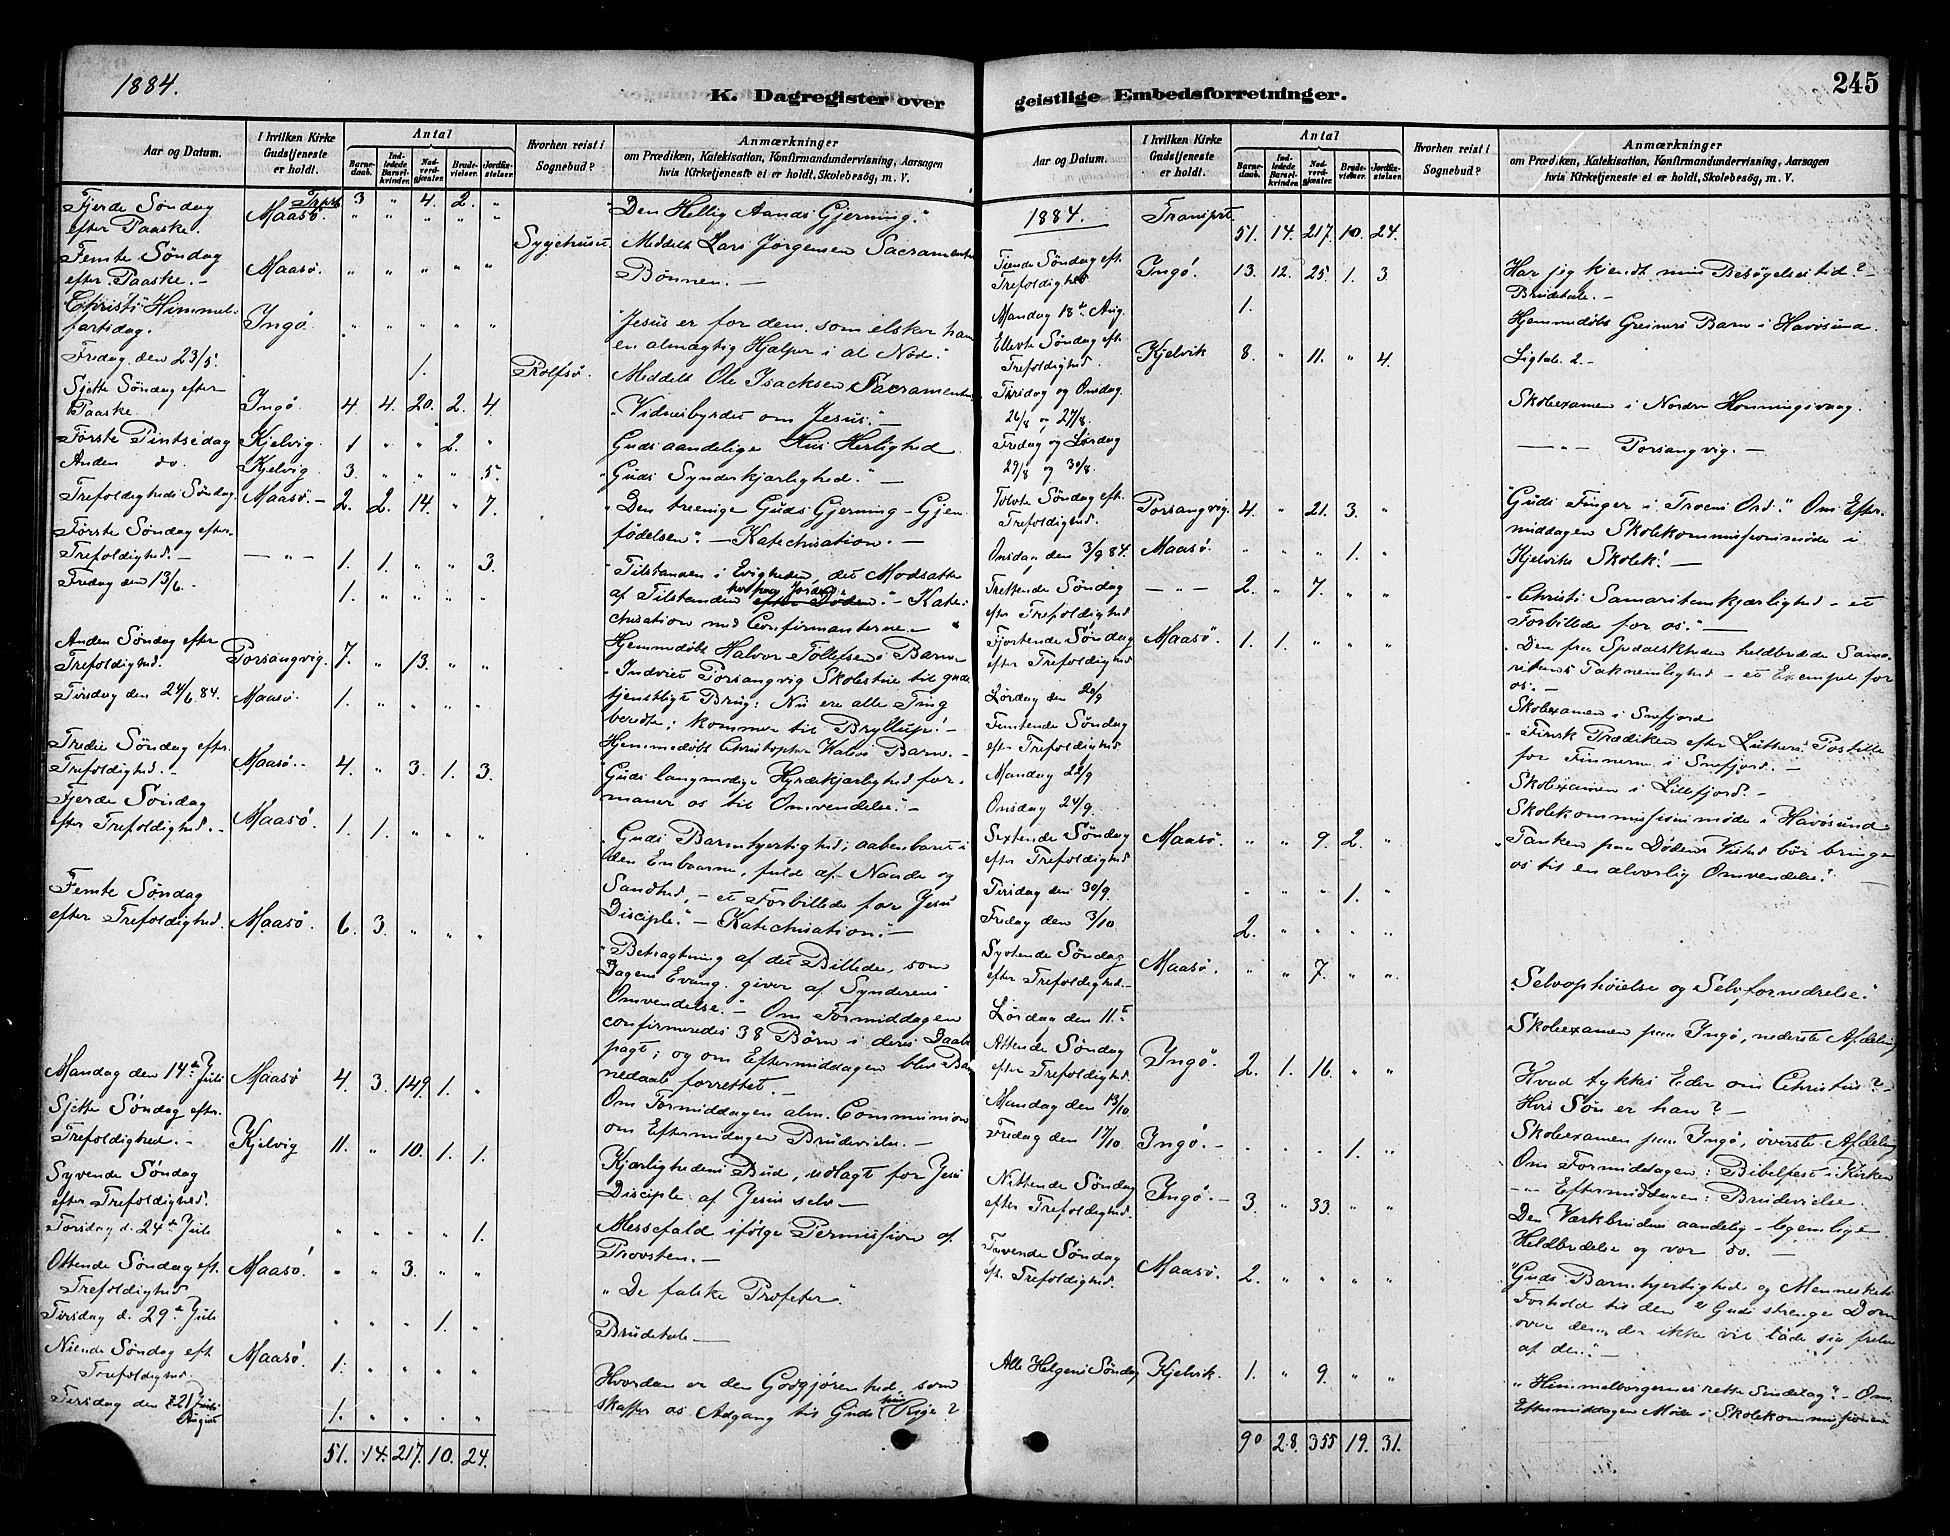 1884.
K. Dagregister over
Aar og Datum.
I hvilken Kirke Gudstjeneste er holdt.
Antal
Barnedaab.
Indledede Barselkvinder.
Nadverdgjæster.
Brudevielser.
Jordfæstelser.
Hvorhen reist i Sognebud?
Anmærkninger
om Prædiken, Katekisation, Konfirmandundervisning, Aarsagen
hvis Kirketjeneste ei er holdt, Skolebesøg, m. V.
Fjerde Søndag Transp. 3 " 4. 2. "
efter Paaske. Maasø. " " " " " "Den Hellig Aands Gjerning."
Sygehuset. Meddelt Lars Jørgensen Sacramentet
Femte Søndag
efter Paaske. - Maasø. " " " " " Bønnen. -
Christi Himmel-
fartsdag. Ingø. " " " " " "Jesus er for dem, som elsker ham
en almægtig Hjælper i al Nød."
Fredag den 23/5. 1. Rolfsø. Meddelt Ole Isacksen Sacramentet.
Sjette Søndag efter
Paaske Ingø. 4 4. 20. 2. 4. "Vidnesbyrdet om Jesus." -
Første Pintsedag Kjelvig. 1 " " 2. " Guds aandelige Hus Herlighed
Anden do. Kjelvig 3. " " " 5. "Guds Synderkjærlighed." -
Trefoldigheds Søndag. Maasø. - 2. 2. 14. " 7. "Den treenige Guds Gjerning - Gjen-
fødelsen". - Katechisation. -
Første Søndag efter
Trefoldighed. - — " — 1. 1. " " 3. "Tilstanden i Evigheden, det Modsatte
Fredag den 13/6. 1. " " " " af Tilstanden her paa Jorden." - Kate-
chisation med Confirmanterne. -
Anden Søndag efter Hjemmedøbt Halvor Tollefsens Barn -
Trefoldighed. Porsangvig. 7. " 13. " " Indviet Porsangvig Skolestue til guds-
Tirsdag den 24/6 84. Maasø. 1. " " " " tjenstligt Brug: Nu ere alle Ting
beredte; kommer til Bryllup! -
Hjemmedøbt Christopher Barn. -
Tredie Søndag efter
Trefoldighed. - Maasø. - 4. " 3. 1. 3. "Guds langmodige Hyrdekjærlighed for-
maner os til Omvendelse." -
Fjerde Søndag
efter Trefoldighed. - Maasø. 1. 1. " " " "Guds Barmhjertighed, aabenbaret i
den Enbaarne, fuld af Naade og
Sandhed, - et Forbillede for Jesu
Disciple." - Katechisation. -
Femte Søndag
efter Trefoldighed. Maasø. 6. 3. " " " "Betragtning af det Billede, som
Dagens Evang. giver af Synderens
Omvendelse." - Om Formiddagen
confirmeredes 38 Børn i deres Daabs-
pagt; og om Eftermiddagen blev Bar-
nedaab forrettet. -
Mandag den 14de Juli Maasø 4. 3. 149. 1. " Om Formiddagen alm. Communion
om Eftermidagen Brudevielse. -
Sjette Søndag efter
Trefoldighed. - Kjelvig 11. " 10. 1. 1. Kjærlighedens Bud, udlagt for Jesu
Disciple af Jesus selv -
Syvende Søndag
efter Trefoldighed. Messefald ifølge Permission af
Provsten. -
Torsdag d. 24de Juli " " " " 1.
Ottende Søndag eft. Maasø. " " 3. " " "De falske Profeter."
Trefoldighed
Tirsdag d. 29de Juli " " " 1. " Brudetale -
Niende Søndag eft. Maasø. 1. " " " "
Trefoldighed. Hvordan er den Godgjørenhed, som
skaffer os Adgang til Guds Rige?
Tirsdag den August 1. " " " "
51. 14. 217. 10. 24.
245
geistlige Embedsforretninger.
Aar og Datum.
I hvilken Kirke Gudstjeneste er holdt.
Antal
Barnedaab.
Indledede Barselkvinder.
Nadverdgjæster.
Brudevielser.
Jordfæstelser.
Hvorhen reist i Sognebud?
Anmærkninger
om Prædiken, Katekisation, Konfirmandundervisning, Aarsagen
hvis Kirketjeneste ei er holdt, Skolebesøg, m. V.
1884. Transport. 51. 14. 217. 10. 24.
Tiende Søndag eft.
Trefoldighed Ingø. 13. 12. 25 1. 3 Har jeg kjendt min Besøgelsestid? -
Brudetale. -
Mandag 18de Aug. 1. Hjemmedøbt Greiners Barn i Havøsund.
Ellevte Søndag eft.
Trefoldighed. Kjelvik 8. " 11. " 4. Ligtale 2. -
Tirsdag og Onsdag
26/8 og 27/8. Skoleexamen i Nordre Honningsvaag.
Fredag og Lørdag
29/8 og 30/8. — " — Porsangvig. -
Tolvte Søndag eft.
Trefoldighed. Porsangvig. 4. " 21. 3. " "Guds Finger i Troens Ord." Om Efter-
middagen Skolekommissionsmøde i
Onsdag den 3/9 84. Maasø. " " " 1. " Kjelviks Skolek! -
Trettende Søndag — " — 2. " 7. " " "Christi Samaritankjærlighed - et
efter Trefoldighed Forbillede for os." -
Fjortende Søndag Maasø. 1. 1. " " " "Den fra Spedalskheden helbredede Sama-
efter Trefoldighed ritans Taknemlighed - et Exempel for
os. -
Lørdag den 20/9 Skoleexamen i Snefjord
Femtende Søndag
efter Trefoldighed "Finsk Prædiken efter Luthers Postille
for Finnerne i Snefjord. -
Mandag 22/9 Skoleexamen i Lillefjord. -
Onsdag 24/9 Skolekommissionsmøde i Havøsund.
Sextende Søndag Maasø. " " 9. 2. " "Tanken paa Dødens Vished bør bringe
efter Trefoldighed os til en alvorlig Omvendelse." -
Tirsdag den 30/9. " " " 1. "
Fredag den 3/10 2. " " " "
Syttende Søndag
efter Trefoldighed. - Maasø. " " 7. " " "Selvophøielse og Selvfornedrelse."
Lørdag den 11te Skoleexamen paa Ingø, nederste Afdeling
Attende Søndag
efter Trefoldighed. Ingø. 2. 1. 16. " " Hvad tykkes Eder om Christus? -
Hvis Søn er han? -
Mandag den 13/10 Skoleexamen paa Ingø, øverste Afdeling
Fredag den 17/10 Ingø. - " " " 1. " Om Formiddagen: Bibelfest i Kirken
— " — Eftermiddagen: Brudevielse.
Nittende Søndag Ingø. - 3. " 33. " "
efter Trefoldighed. Den Værkbrudens aandelig-legemlige
Helbredelse og vor do. -
Tyvende Søndag
eft. Trefoldighed. Maasø. 2. " " " " "Guds Barmhjertighed og Menneskets
Forhold til den & Guds strenge Dom
over den, der ikke vil lade sig frelse
af den." -
Alle Helgens Søndag Kjelvik. 1. " 9. " " "Himmelborgernes rette Sindelag." - Om
Eftermiddagen Møde i Skolekommissionen
90 28. 355 19. 31.